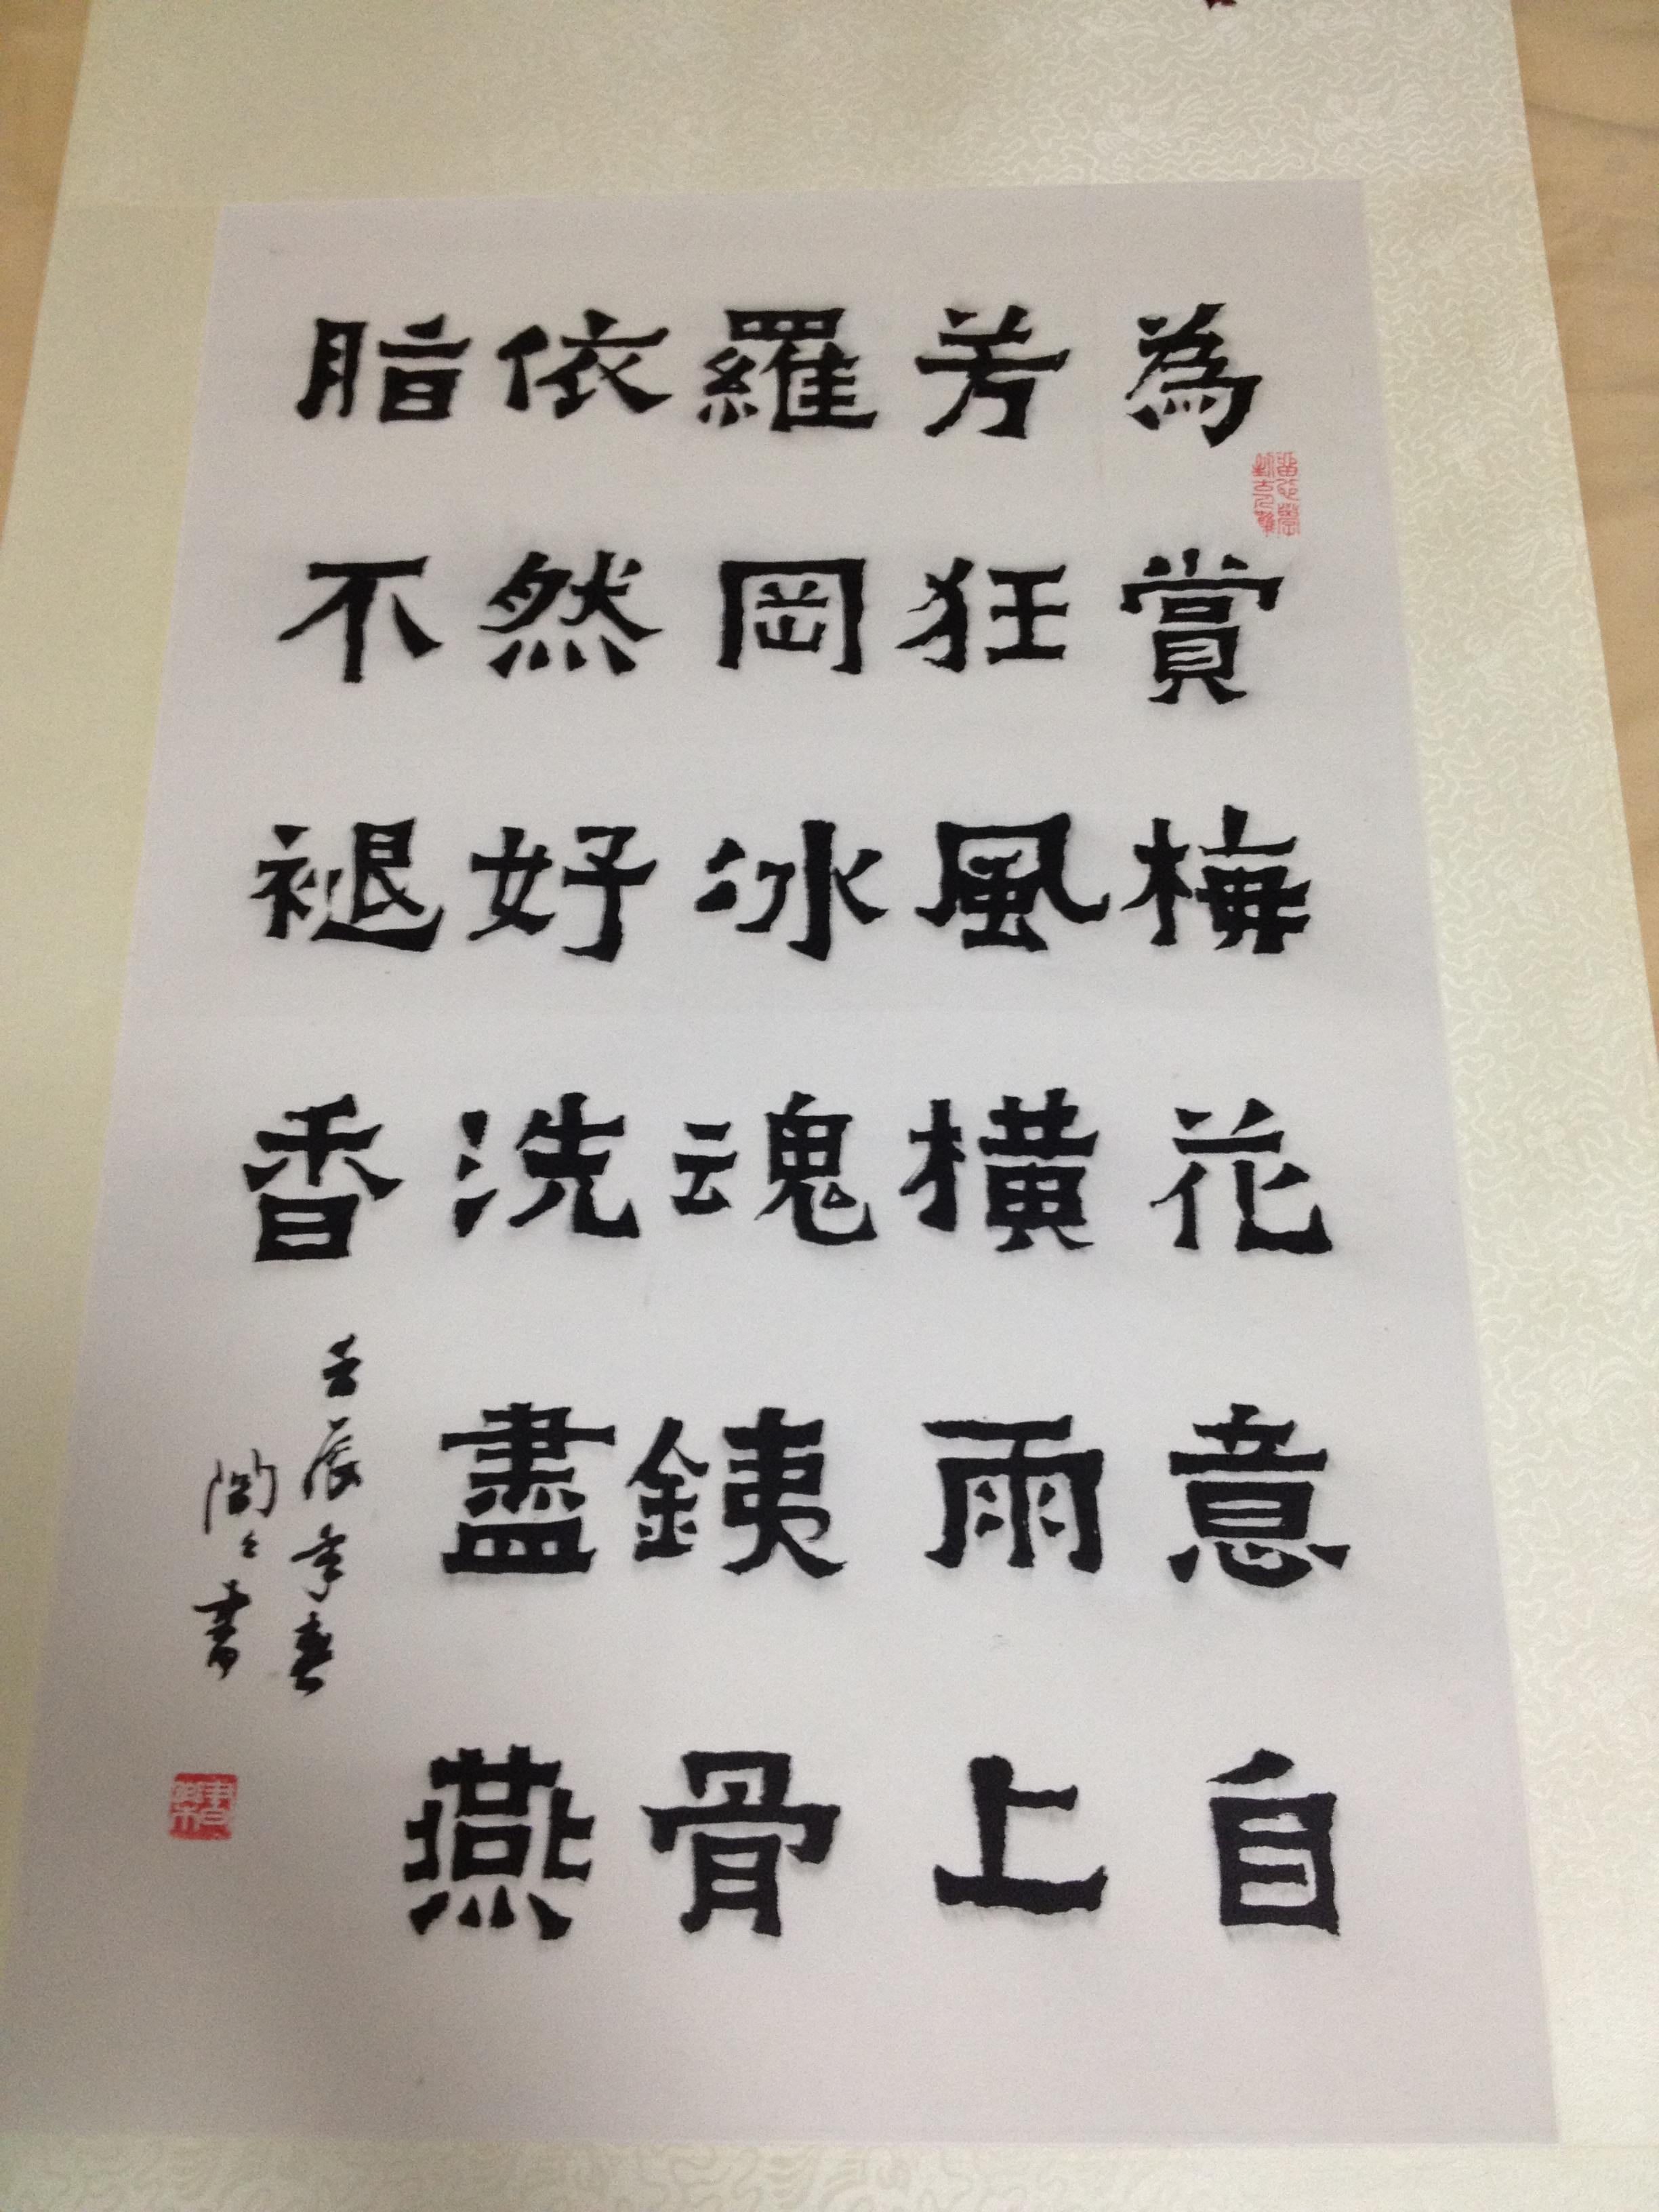 為賞梅花意自
芳狂風橫雨上
羅岡冰魂銕骨
依然好洗盡燕
脂不褪香
壬辰年春
陶々書